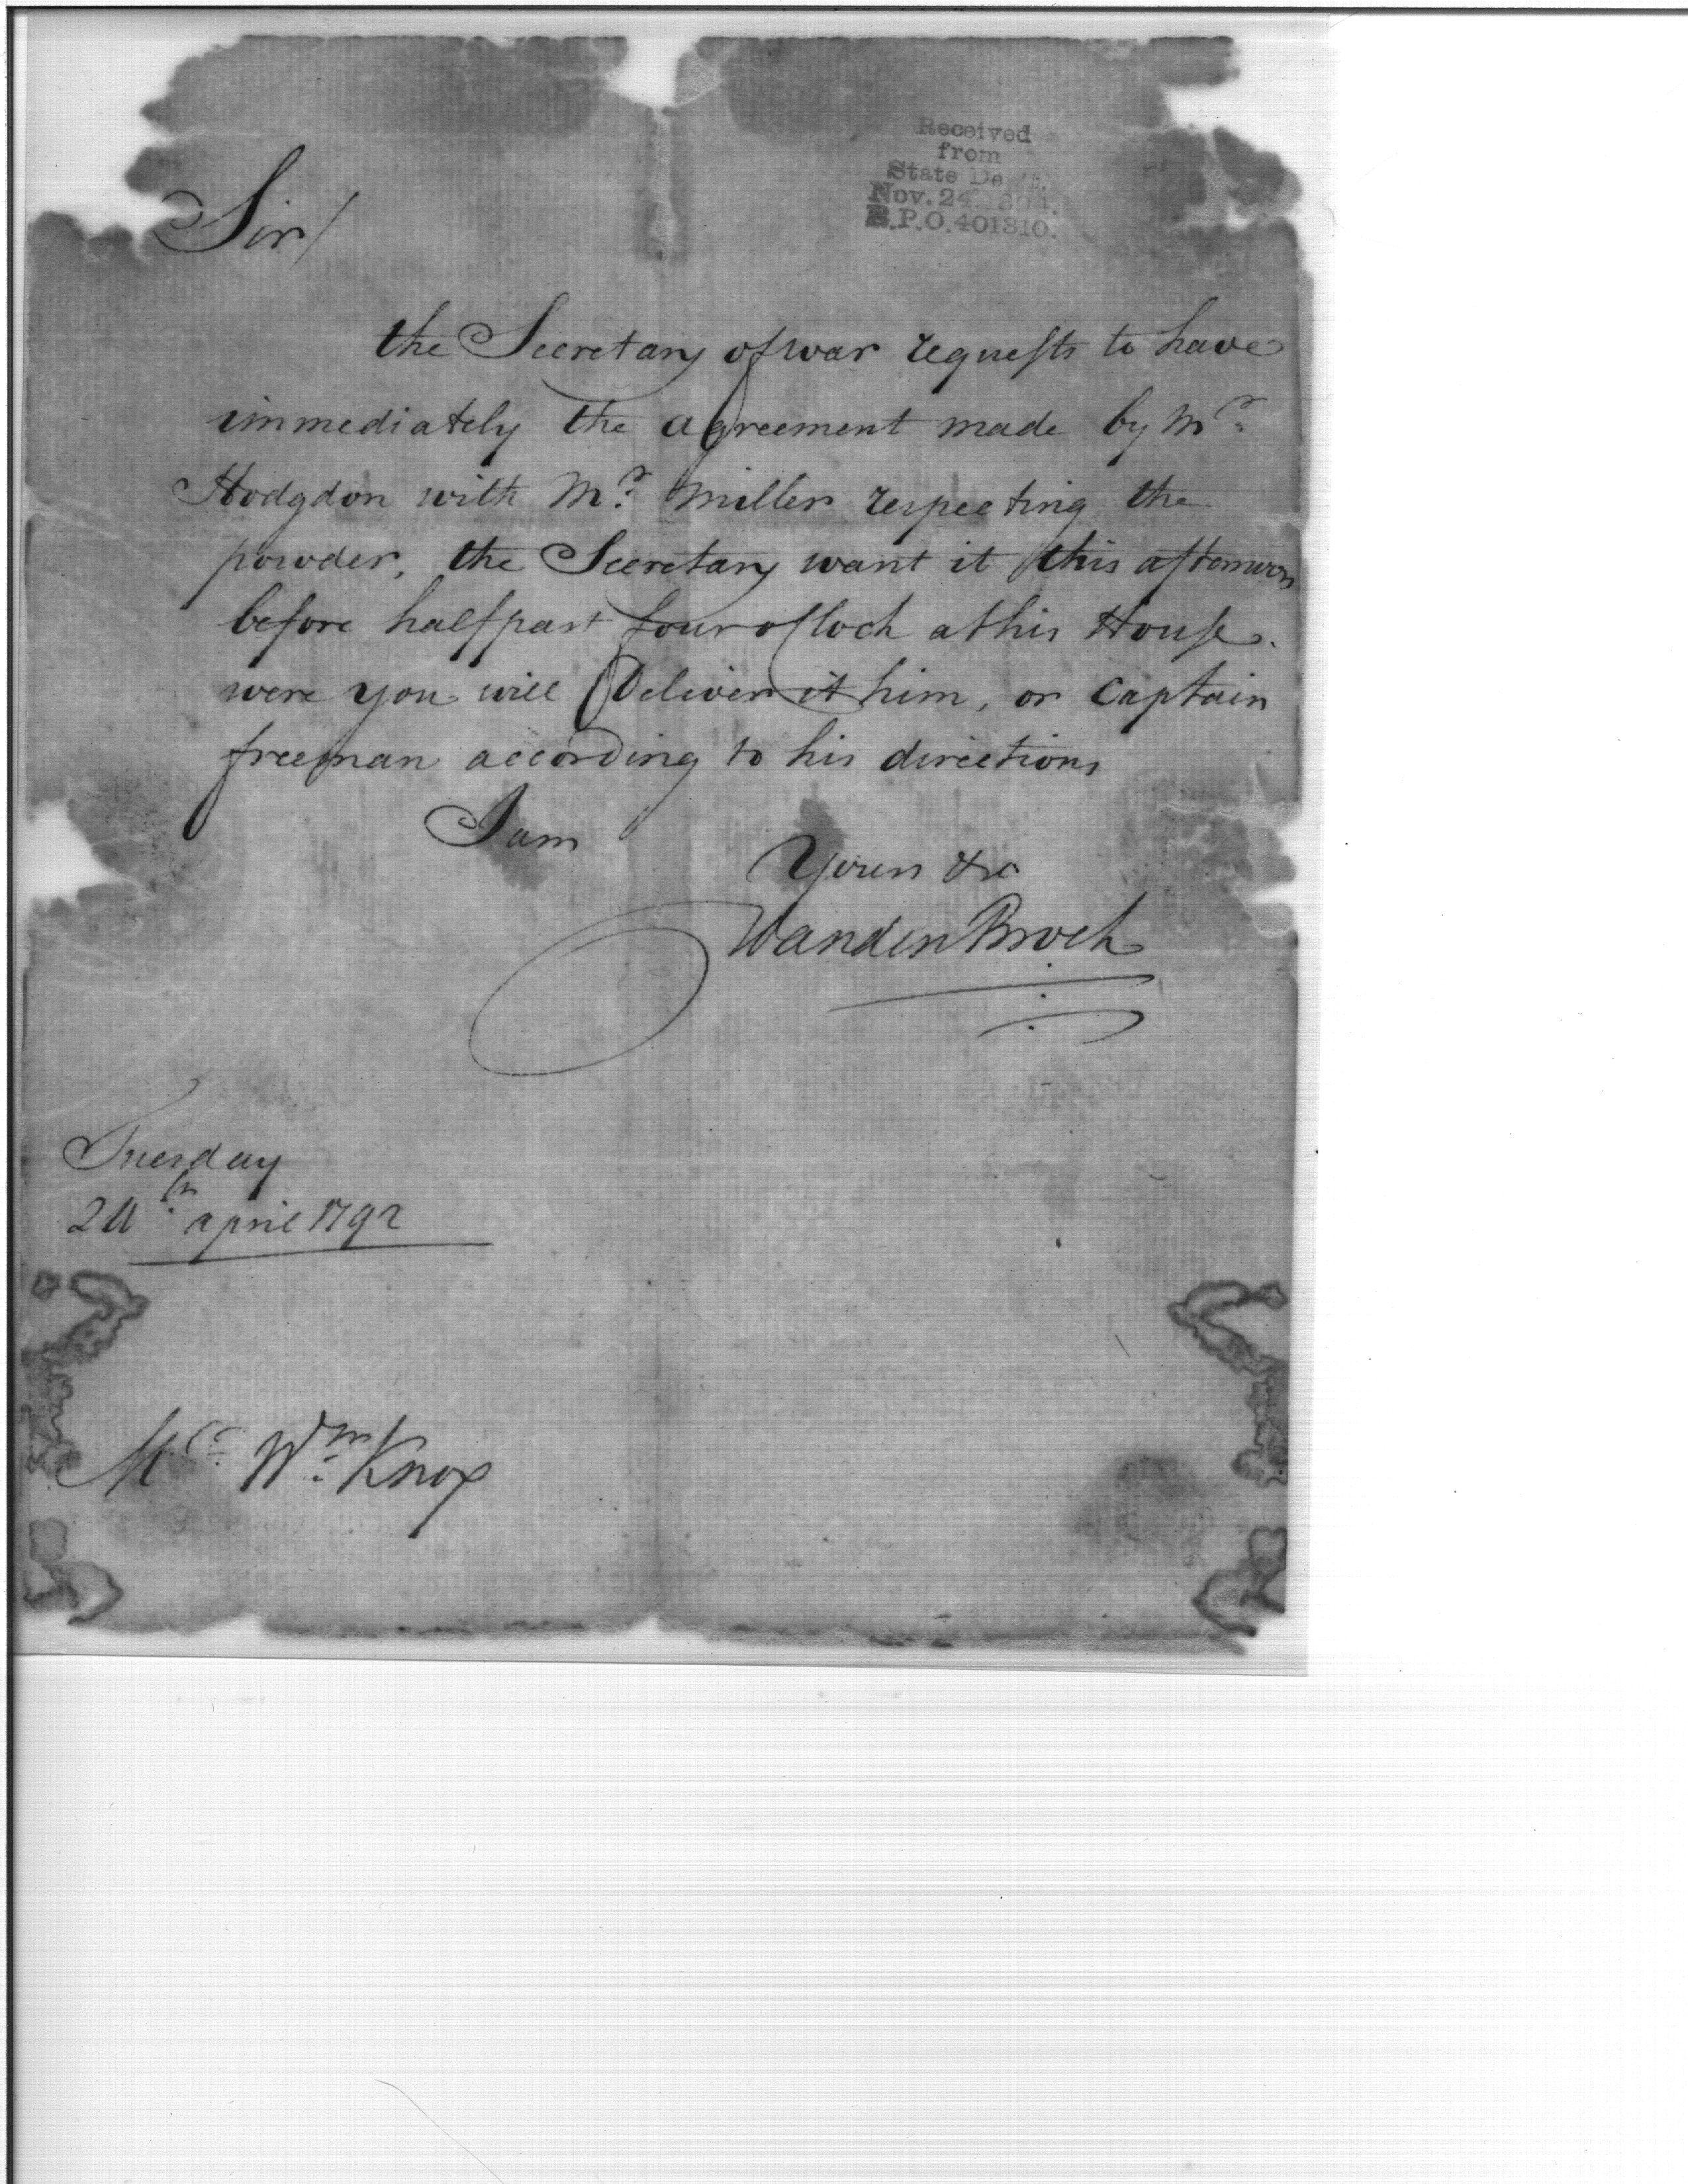 Received
from
State De
Nov. 24
E.P.O. 401810.
Sir/
the Secretary of war requests to have
immediately the agreement made by Mr.
Hodgdon with Mr. Miller respecting the
powder, the Secretary want it this afternoon
before half past four o Clock at his House.
were you will Deliver it him, or Captain
freeman according to his directions
I am
Yours &c
VandenBroek
Tuesday
24th april 1792
Mr. Wm. Knox